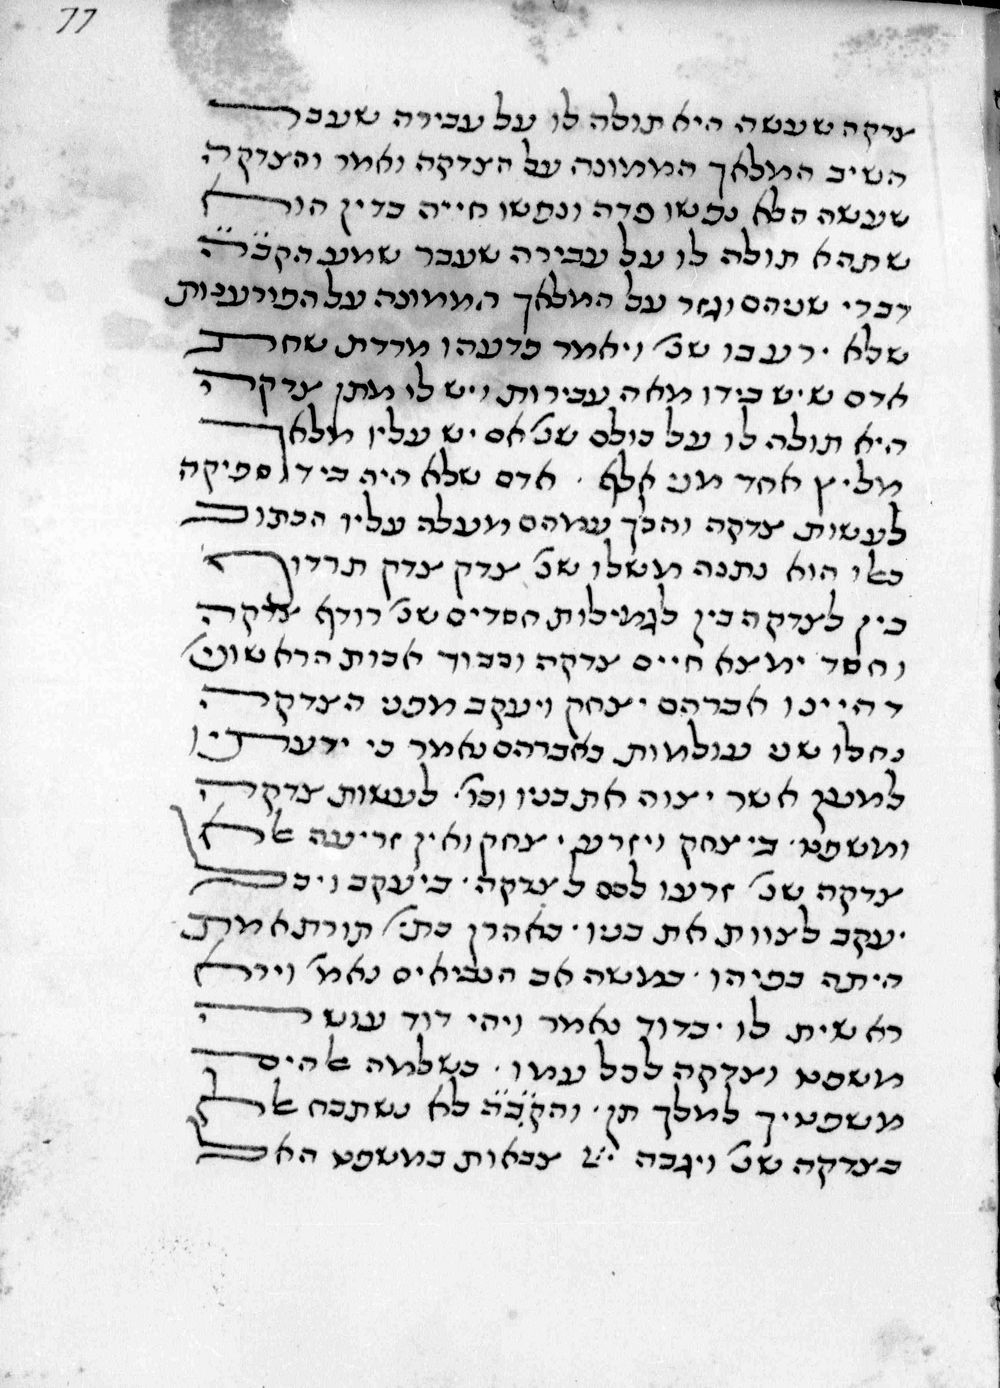 77
צדקה שעשה היא תולה לו על עבירה שעבר
השיב המלאך הממונה על הצדקה ואמר והצדקה
שעשה הלא נפשו פדה ונפשו חייה בדין הוא
שתהא תולה לו על עבירה שעבר שמע הקב״ה
דברי שניהם וגזר על המלאך הממונה על הפורענות
שלא ירעבו שנ׳ ויאמר פדעהו מרדת שחת
אדם שיש בידו מאה עבירות ויש לו מתן צדקה
היא תולה לו על כולם שנ׳ אם יש עליו מלאך
מליץ אחד מני אלף · אדם שלא היה בידו ספיקה
לעשות צדקה והלך עמהם מעלה עליו הכתוב
כאלו הוא נתנה משלו שנ׳ צדק צדק תרדוף
בין לצדקה בין לגמילות חסדים שנ׳ רודף צדקה
וחסד ימצא חיים צדקה וכבוד אבות הראשוני׳
דהיינו אברהם יצחק ויעקב מפני הצדקה
נחלו שני עולמות באברהם נאמר כי ידעתיו
למען אשר יצוה את בניו וכו׳ לעשות צדקה
ומשפט · ביצחק ויזרע יצחק ואין זריעה אלא
צדקה שנ׳ זרעו לכם לצדקה · ביעקב ויכל
יעקב לצוות את בניו · באהרן כתי׳ תורת אמת
היתה בפיהו · במשה אב הנביאים נאמ׳ וירא
ראשית לו · בדוד נאמר ויהי דוד עושה
משפט וצדקה לכל עמו · בשלמה אלהים
משפטיך למלך תן · והקב״ה לא נשתבח אלא
בצדקה שנ׳ ויגבה יי׳ צבאות במשפט האל